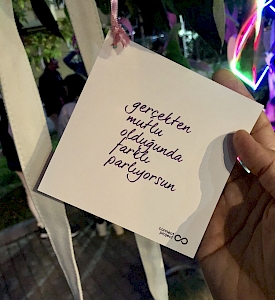 gerçekten
mutlu
olduğunda
farklı
parlıyorsun